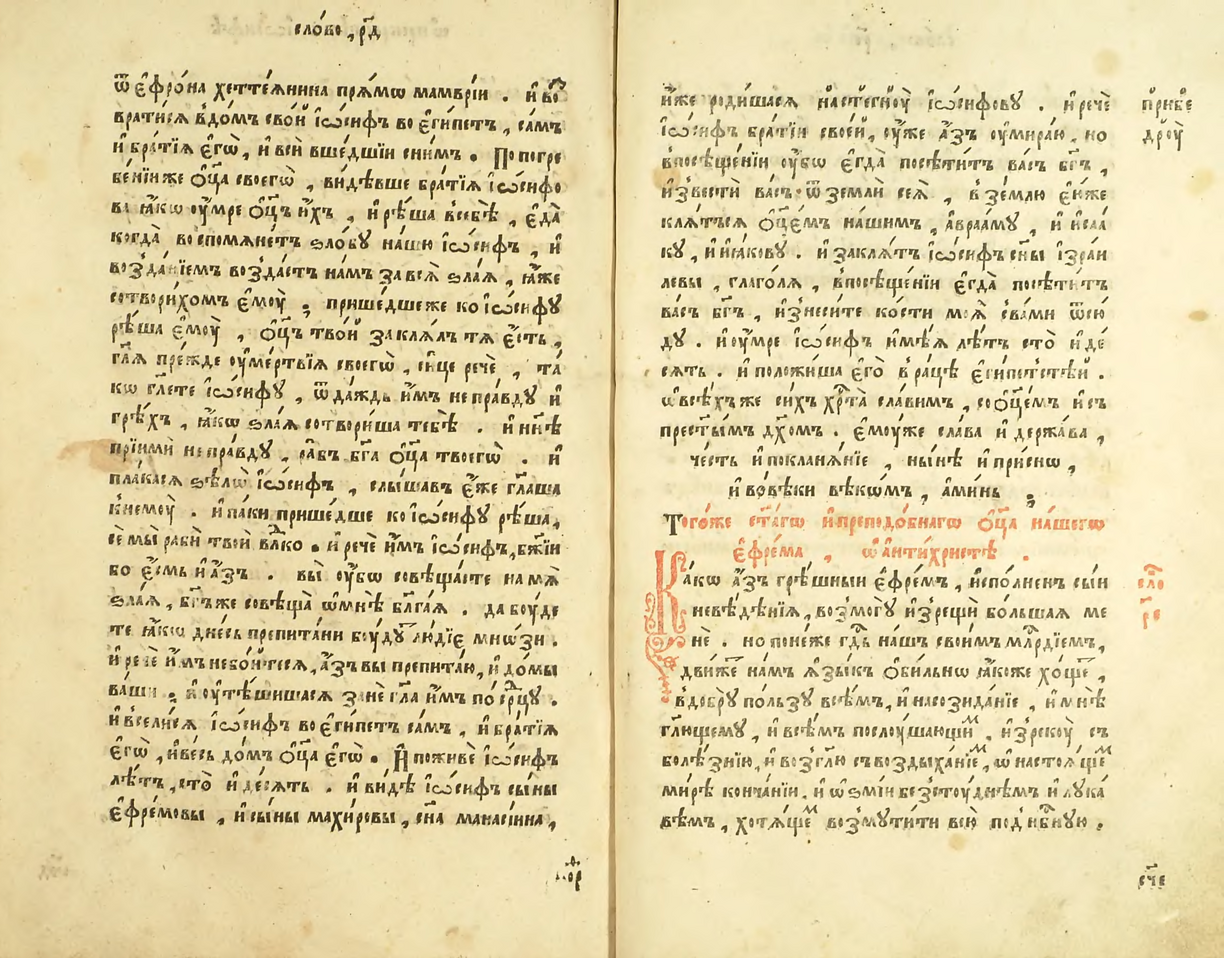 сло́во, р҃д
ѿ є҆фро́на хетте́ѧнина прѧ́мѡ мамврі́и . и҆ во
врати́сѧ вдо́мъ сво́й і҆ѡ́сифъ во є҆ги́петъ, са́мъ
и҆ бра́тїѧ є҆гѡ̀, и҆ всѝ вше́дшїи сни́мъ . По погре
бе́нїиже ѻ҆ц҃а своегѡ̀, ви́дѣвше бра́тїѧ і҆ѡ́сифо
ва ꙗ҆́кѡ ᲂу҆́мре ѻ҆ц҃ъ и҆́хъ, и҆ рѣ́ша всебѣ̀, є҆да̀
когда̀ воспомѧне́тъ ѕло́бꙋ на́шю і҆ѡ́сифъ, и҆
возда́нїемъ возда́стъ на́мъ за всѧ̀ ѕла́ѧ, ꙗ҆́же
сотвори́хомъ є҆моу̀ ; прише́дшеже ко і҆ѡ́сифꙋ
рѣ́ша є҆моу̀, ѻ҆ц҃ъ тво́й заклѧ́лъ тѧ є҆́сть,
гл҃ѧ пре́жде ᲂу҆ме́ртьвїѧ своегѡ̀, си́це речѐ, та́
кѡ гл҃ете і҆ѡ́сифꙋ, ѿда́ждь и҆̀мъ непра́вдꙋ и҆
грѣ́хъ, ꙗ҆́кѡ ѕла́ѧ сотвори́ша тебѣ̀ . и҆ нн҃ѣ
прїимѝ непра́вдꙋ, ра́бъ бг҃а ѻ҆ц҃а твоегѡ̀ . и҆
пла́касѧ ѕѣлѡ̀ і҆ѡ́сифъ, слы́шавъ є҆́же гл҃аша
кнемоу̀ . и҆ па́ки прише́дше ко і҆ѡ́сифꙋ рѣ́ша,
сѐ мы̀ рабѝ твоѝ влⷣко . и҆ речѐ и҆̀мъ і҆ѡ́сифъ, бж҃їи
бо є҆́смь и҆ а҆́зъ . вы̀ ᲂу҆́бо совѣща́сте на мѧ̀
ѕла́ѧ, бг҃ъже совѣща̀ ѡ҆мнѣ̀ бл҃га́ѧ . да боуде
те ꙗ҆́кѡ дне́сь препита́ни боу́дꙋтъ лю́дїє мно́ѕи .
и҆ речѐ и҆̀мъ небо́йтесѧ, а҆́зъ вы препита́ю, и҆ до́мы
ва́ша . и҆ ᲂу҆тѣ́шишасѧ занѐ гл҃а и҆̀мъ по срⷣцꙋ .
и҆ всели́сѧ і҆ѡ́сифъ во є҆ги́петъ са́мъ, и҆ бра́тїѧ
є҆гѡ̀, и҆ ве́сь до́мъ ѻ҆ц҃а є҆гѡ̀ . И҆ поживѐ і҆ѡ́сифъ
лѣ́тъ, сто̀ и҆ де́сѧть . и҆ ви́дѣ і҆ѡ́сифъ сы́ны
є҆фре́мовы, и҆ сы́ны махи́ровы, сн҃а манасі́ина,
и҆̀же роди́шасѧ настегноу̀ і҆ѡ́сифовꙋ . и҆ речѐ при́ бе
і҆ѡ́сифъ бра́тїи свое́й, ᲂу҆́же а҆́зъ ᲂу҆мира́ю, но дроу̀
впосѣще́нїи ᲂу҆́бо є҆гда̀ посѣти́тъ ва́съ бг҃ъ,
и҆звестѝ ва́съ ѿ землѝ сеѧ̀, в зе́млю є҆́юже
клѧ́тьсѧ ѻ҆ц҃е́мъ на́шимъ, а҆враа́мꙋ, и҆ исаа́
кꙋ, и҆ и҆ꙗ́ковꙋ . и҆ заклѧ́тъ і҆ѡ́сифъ сн҃ы і҆зра́и
левы, глаго́лѧ, впосѣще́нїи є҆гда̀ посѣти́тъ
ва́съ бг҃ъ, и҆знеси́те ко́сти моѧ̀ сва́ми ѿсю́
дꙋ . и҆ ᲂу҆́мре і҆ѡ́сифъ и҆мѣ́ѧ лѣ́тъ сто̀ и҆ де́
сѧть . и҆ положи́ша є҆го̀ в ра́цѣ є҆ги́петстѣй .
ѡ҆ всѣ́хъже си́хъ хрⷭ҇та̀ сла́вимъ, со ѻ҆ц҃е́мъ и҆ съ
прест҃ы́мъ дх҃омъ . є҆моу́же сла́ва и҆ держа́ва,
че́сть и҆ покланѧ́нїе, ны́нѣ и҆ при́снѡ,
и҆ во́вѣки вѣкѡ́мъ, а҆ми́нь ;
Того́же ст҃а́гѡ и҆ преподо́бнагѡ ѻ҆ц҃а на́шегѡ
є҆фре́ма, ѡ҆ а҆нти́христѣ .
Ка́кѡ а҆́зъ грѣ́шныи є҆фре́мъ, и҆спо́лненъ сы́и сло́
невѣ́дѣнїѧ, возмогꙋ̀ и҆зрещѝ бо́льшаѧ ме р҃е
нѐ . но поне́же гдⷭ҇ь на́шъ свои́мъ млⷭ҇рдїемъ,
дви́же на́мъ ꙗ҆зы́къ ѻ҆би́льнѡ ꙗ҆́коже хо́щетъ,
вдо́брꙋ по́льзꙋ всѣ́мъ, и҆ насозида́нїе, и҆ мнѣ̀
гл҃ющемꙋ, и҆ всѣ́мъ послоу́шающимъ, и҆зрекоу̀ съ
болѣ́знїю, и҆ возгл҃ю съ воздыха́нїемъ, ѡ҆ настоѧ́щемъ
ми́рѣ конча́нїи, и҆ ѡ҆ ѕмі́и безстоу́днѣмъ и҆ лꙋка́
вѣмъ, хотѧ́щемъ возмꙋти́ти всю̀ под нбⷭ҇нꙋю .
сꙗ҃е